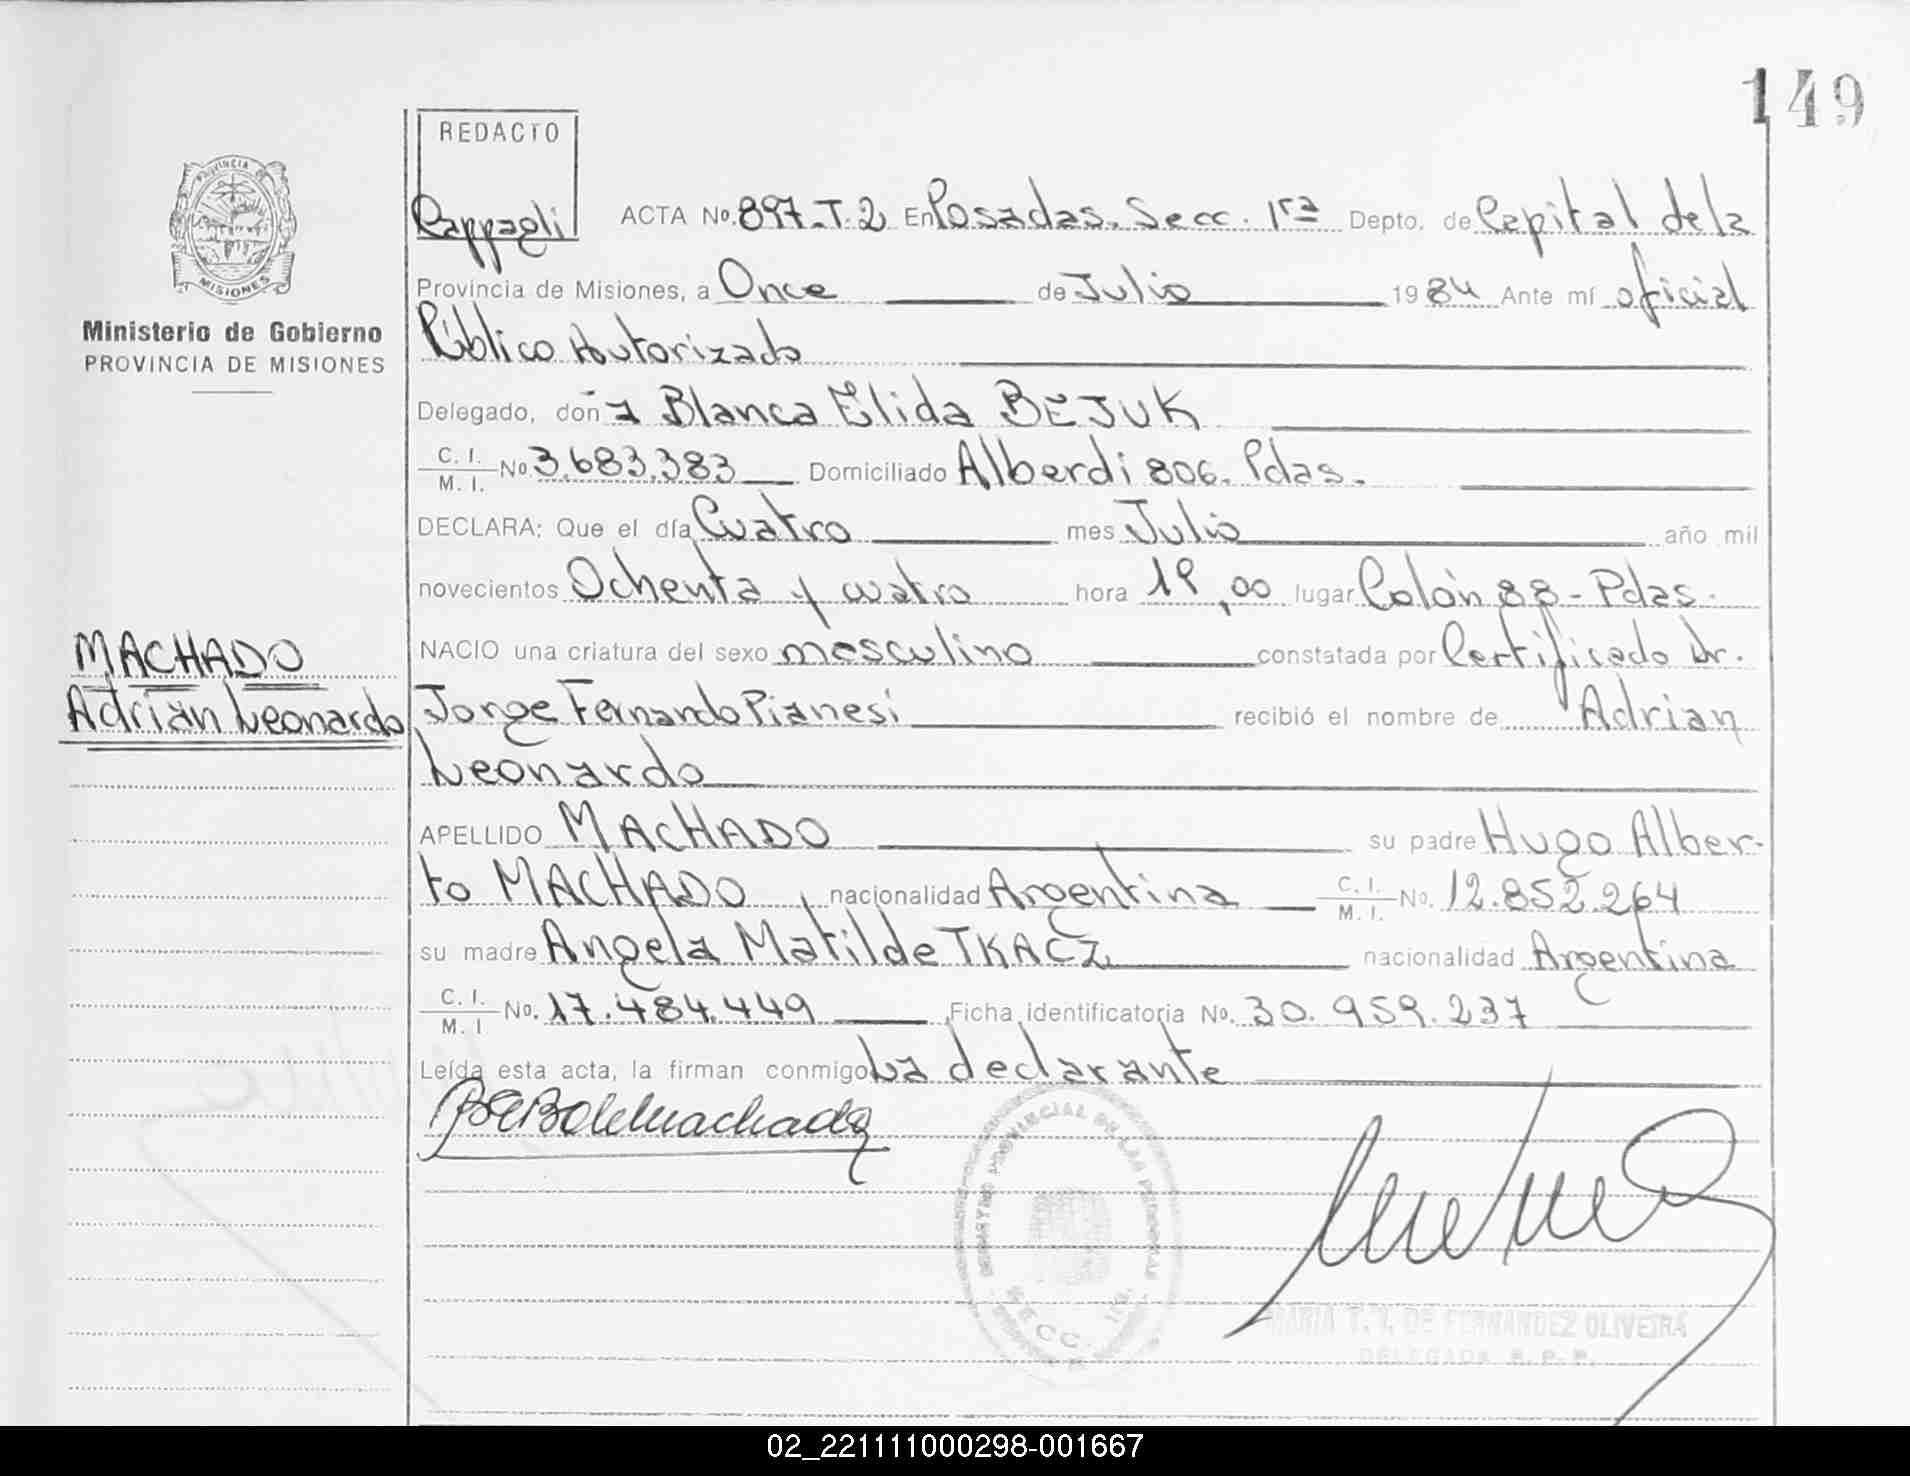 149
REDACTO
Rappagli
ACTA No. 897-T.2 En Posadas. Secc. 1ra Depto. de Capital de la
PROVINCIA
MISIONES
Provincia de Misiones, a Once de Julio 1984 Ante mí oficial
Ministerio de Gobierno
PROVINCIA DE MISIONES
Público Autorizado
Delegado, don a Blanca Elida BEJUK
C. I. M. I. No. 3.683.383 Domiciliado Alberdi 806. Pdas.
DECLARA: Que el día Cuatro mes Julio año mil
novecientos Ochenta y cuatro hora 19,00 lugar Colón 88 - Pdas.
NACIO una criatura del sexo masculino constatada por Certificado Dr.
MACHADO
Adrian Leonardo
Jorge Fernando Pianesi recibió el nombre de Adrian
Leonardo
APELLIDO MACHADO su padre Hugo Alber-
to MACHADO nacionalidad Argentina C. I. M. I. No. 12.852.264
su madre Angela Matilde TKACZ nacionalidad Argentina
C. I. M. I No. 17.484.449 Ficha identificatoria No. 30.959.237
Leída esta acta, la firman conmigo La declarante
MARIA T. V. DE FERNANDEZ OLIVEIRA
DELEGADA R. P. P.
02_221111000298-001667